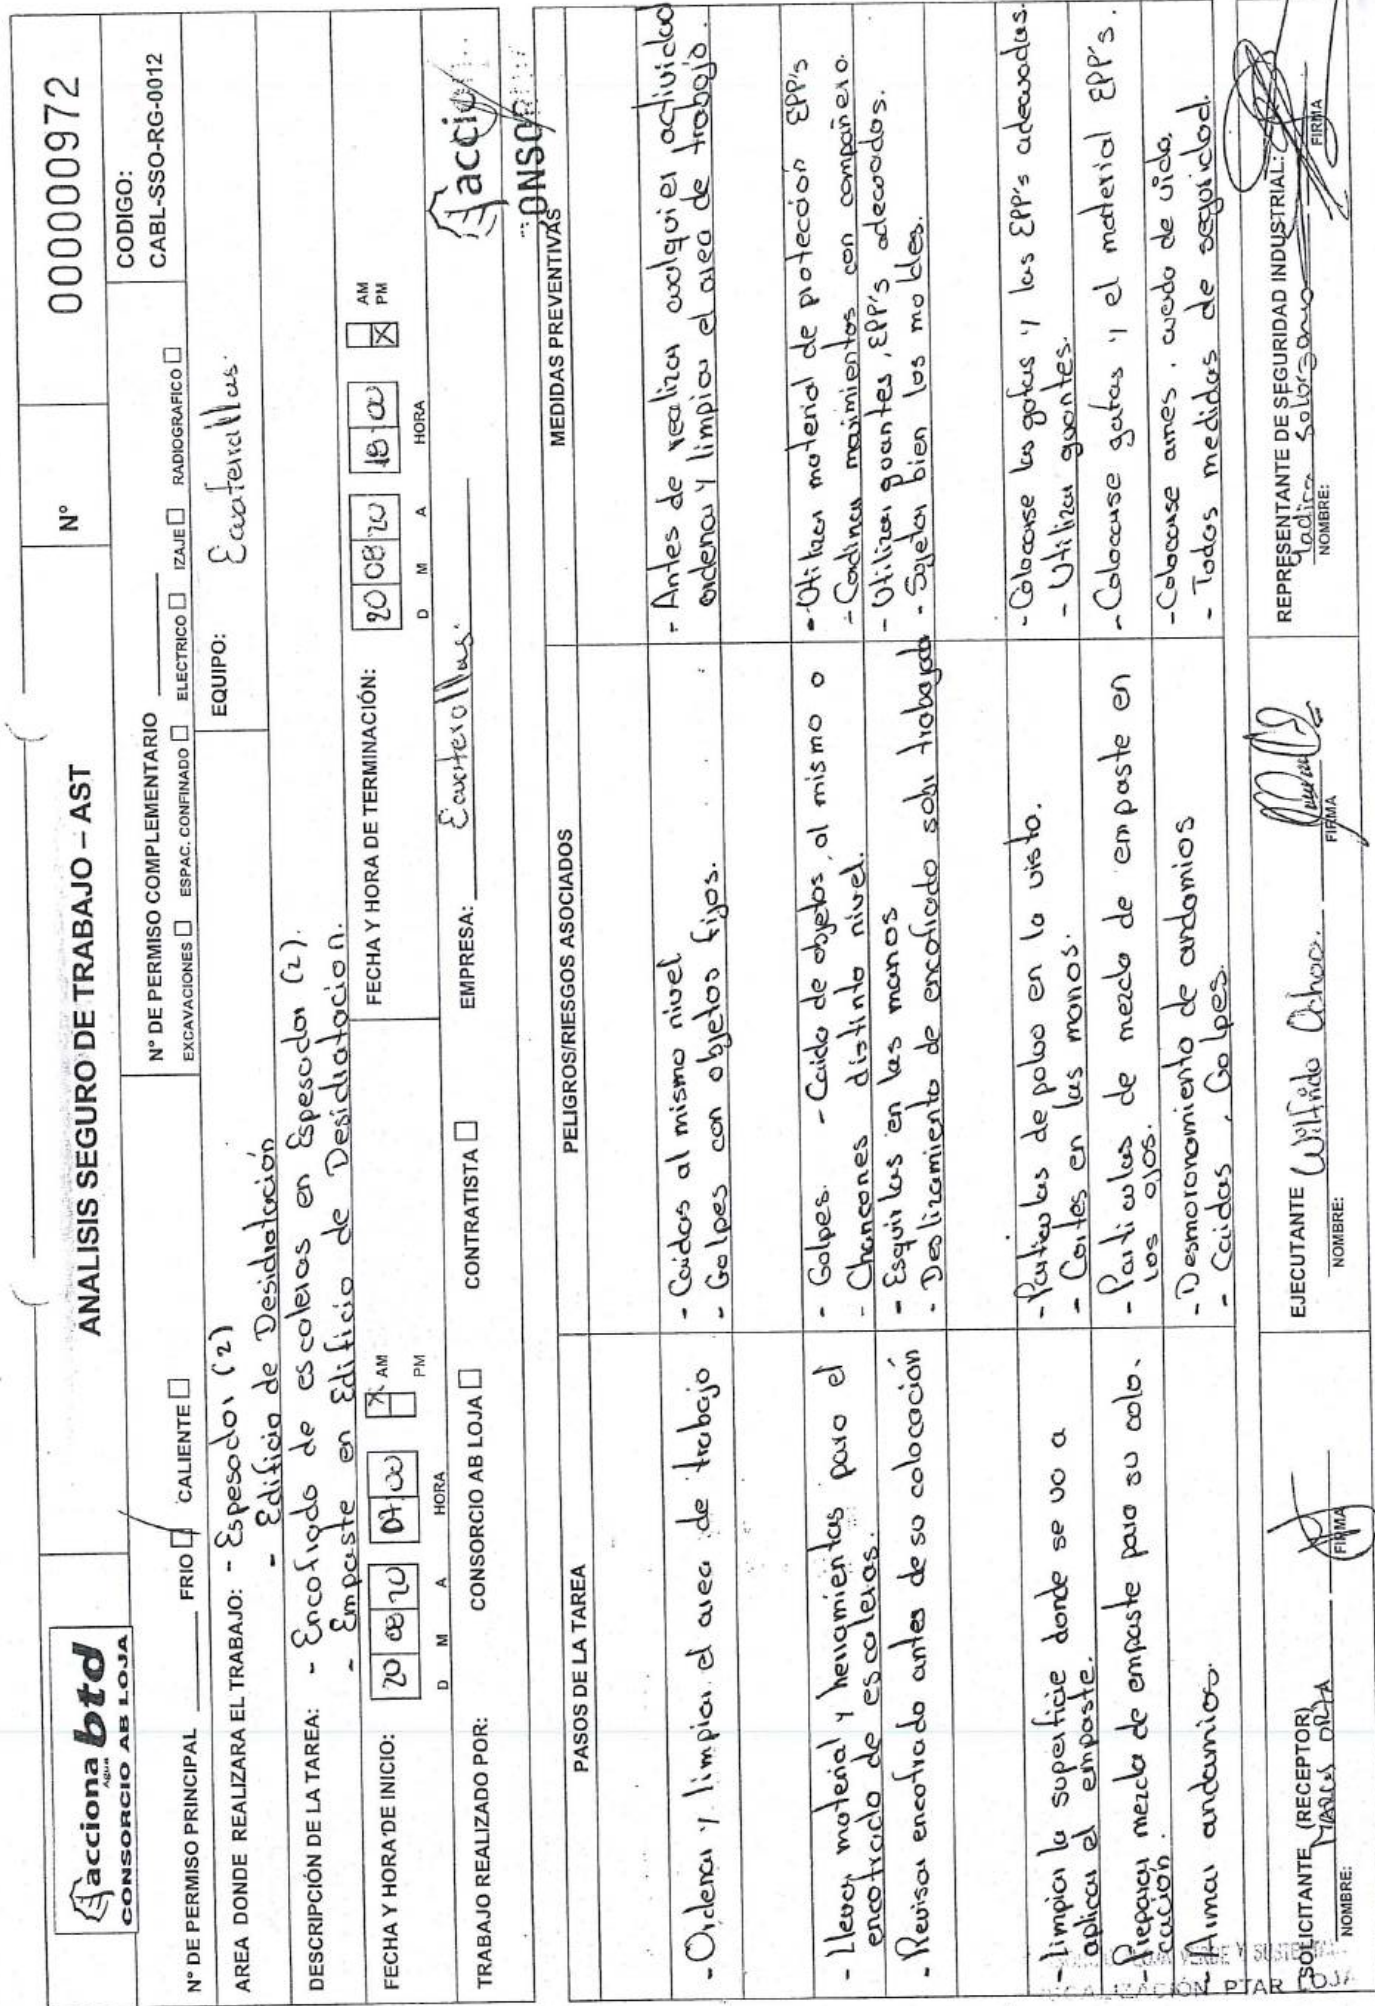 acciona
Agua
btd
CONSORCIO AB LOJA
ANALISIS SEGURO DE TRABAJO – AST
N°
000000972
CODIGO:
CABL-SSO-RG-0012
N° DE PERMISO PRINCIPAL
FRIO
CALIENTE
N° DE PERMISO COMPLEMENTARIO
EXCAVACIONES ESPAC. CONFINADO ELECTRICO IZAJE RADIOGRAFICO
AREA DONDE REALIZARA EL TRABAJO: - Espesador (2)
- Edificio de Desidratación
EQUIPO: Ecuaterallas.
DESCRIPCIÓN DE LA TAREA: - Encofrado de escaleras en Espesador (2).
- Empaste en Edificio de Desidratacion.
FECHA Y HORA DE INICIO: 20 08 20 07:00 X AM
PM
D M A HORA
FECHA Y HORA DE TERMINACIÓN: 20 08 20 18:00 AM
X PM
D M A HORA
TRABAJO REALIZADO POR: CONSORCIO AB LOJA CONTRATISTA
EMPRESA: Ecuaterallas.
accio
ONSOR
PASOS DE LA TAREA
PELIGROS/RIESGOS ASOCIADOS
MEDIDAS PREVENTIVAS
- Ordenar y limpiar el area de trabajo
- Caidas al mismo nivel
- Golpes con objetos fijos.
- Antes de realizar cualquier actividad
ordenar y limpiar el area de trabajo.
- Llevar material y herramientas para el
encofrado de escaleras.
- Golpes. - Caida de objetos al mismo o
- Chancones distinto nivel.
- Utilizar material de protección EPP's
- Cordinar movimientos con compañero.
- Revisar encofrado antes de su colocación
- Esquirlas en las manos
- Deslizamiento de encofrado sobr trabajado
- Utilizar guantes, EPP's adecuados.
- Sojetar bien los moldes.
- Limpiar la superficie donde se va a
aplicar el empaste.
- Particulas de polvo en la vista.
- Cortes en las manos.
- Colocarse las gafas y los EPP's adecuados.
- Utilizar guantes.
- Preparar mezcla de empaste para su colo.
cación.
- Particulas de mezcla de empaste en
los ojos.
- Colocarse gafas y el material EPP's.
- Armar andamios.
- Desmoronamiento de andamios
- Caidas, Golpes.
- Colocarse arnes, cuerda de vida.
- Todas medidas de seguridad.
SOLICITANTE (RECEPTOR)
MARCOS ORTA
NOMBRE:
FIRMA
EJECUTANTE Wilfrido Ochoa.
NOMBRE:
FIRMA
REPRESENTANTE DE SEGURIDAD INDUSTRIAL:
Yadira Solorzano
NOMBRE:
FIRMA
VERDE Y
PTAR LOJA